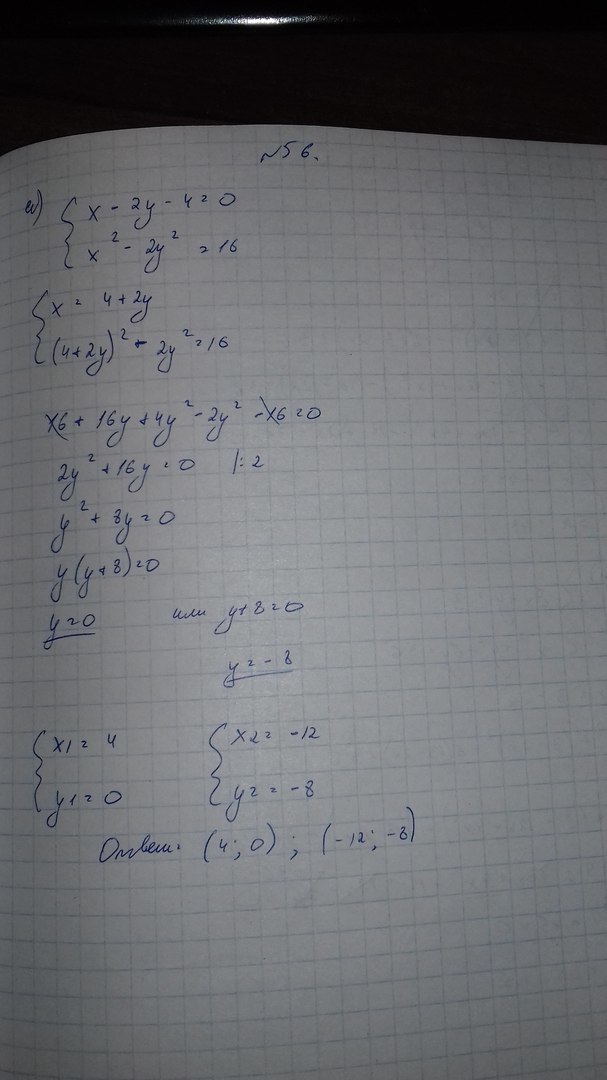 №56.
а) { x - 2y - 4 = 0
x² - 2y² = 16
{ x = 4 + 2y
(4+2y)² - 2y² = 16
16 + 16y + 4y² - 2y² - 16 = 0
2y² + 16y = 0 |: 2
y² + 8y = 0
y(y+8) = 0
y = 0 или y+8 = 0
y = -8
{ x1 = 4 { x2 = -12
y1 = 0 y2 = -8
Ответ: (4; 0) ; (-12; -8)